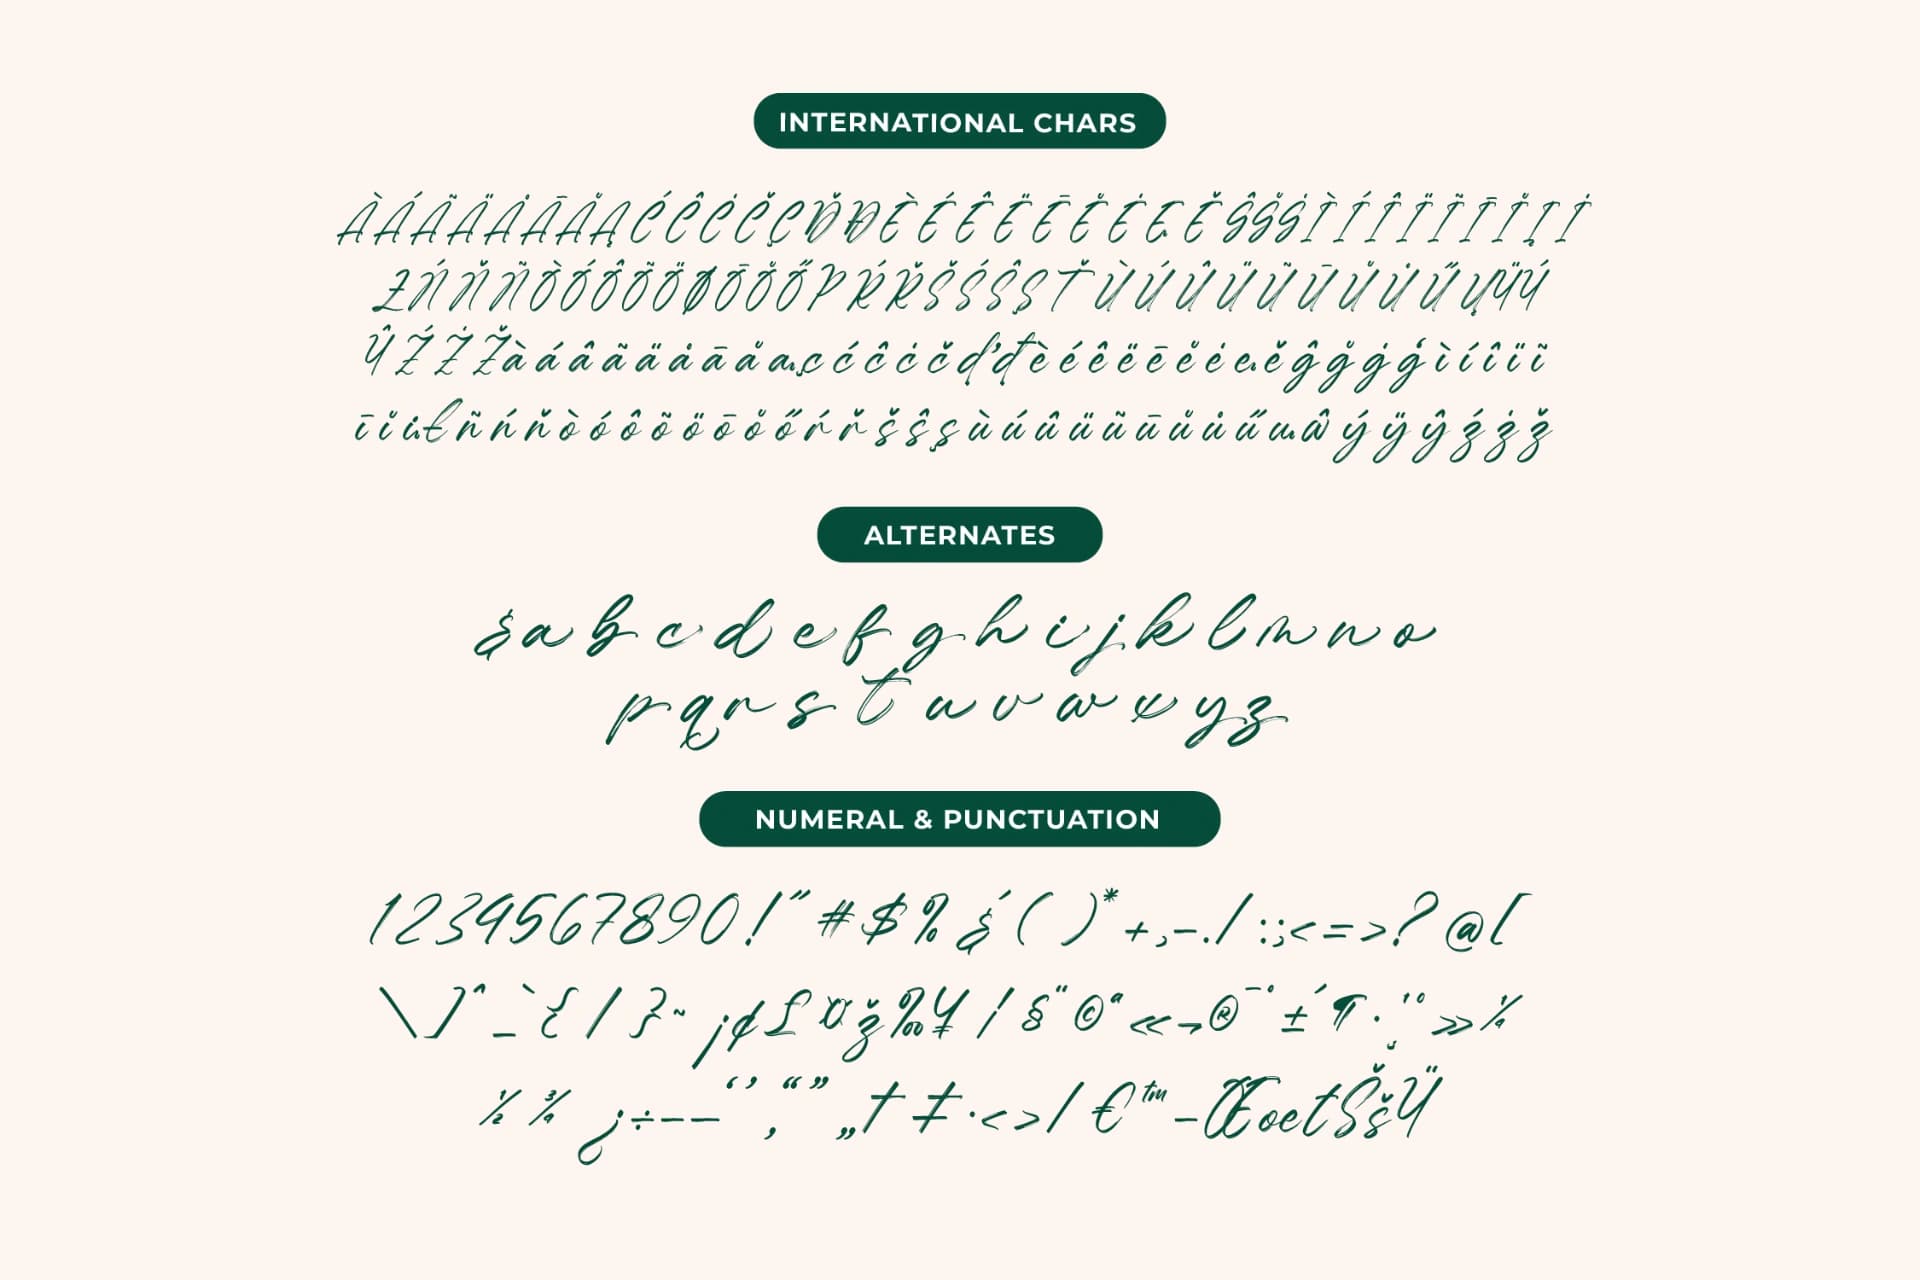 INTERNATIONAL CHARS
ÀÁÃÄȦĀÅĄĆĈĊČÇĎĐÈÉÊËĒE̊ĖĘĚĜG̊ĠÌÍÎÏĨĪI̊Įİ
ŁŃŇÑÒÓÔÕÖØŌO̊ŐPŔŘŠŚŜŞŤÙÚÛÜŨŪŮU̇ŰŲŸÝ
ŶŹŻŽàáâãäȧāåąçćĉċčďđèéêëēe̊ėęěĝg̊ġģìíîïĩ
īi̊įłñńňòóôõöōo̊őŕřšŝşùúûüũūůu̇űųŵýÿŷźżž
ALTERNATES
&abcdefghijklmno
pqrstuvwxyz
NUMERAL & PUNCTUATION
1234567890!"#$%&'()*+,-./:;<=>?@[
\]^_`{|}~¡¢£¤ž‰¥¦§¨©ª«¬®¯°±´¶·¸¹º»¼
½¾¿÷–—‘’‚“”„†‡·<>/€™−ŒoetŠšŸ